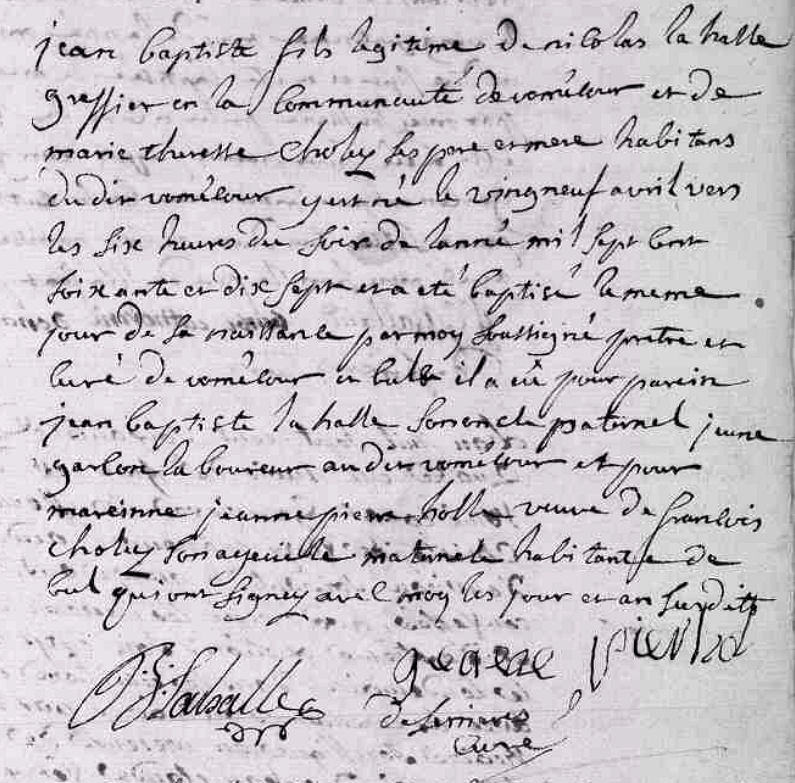 jean baptiste fils legitime de nicolas la halle
greffier en la Communauté de vomécour et de
marie theresse Choley ses pere et mere habitans
du dit vomécour y est né le vingneuf avril vers
les six heures du soir de lanné mil sept cent
soixante et dix sept et a eté baptisé le meme
jour de sa naissance par moy soussigné pretre et
curé de vomécour et bult il a eû pour parein
jean baptiste la halle son oncle paternel jeune
garson laboureur au dit vomécour et pour
mareinne jeanne pierre veuve de francois
Choley son ayeüelle maternele habitante de
bul qui ont signez avec moy les jour et an susdits
Lahalle
curé